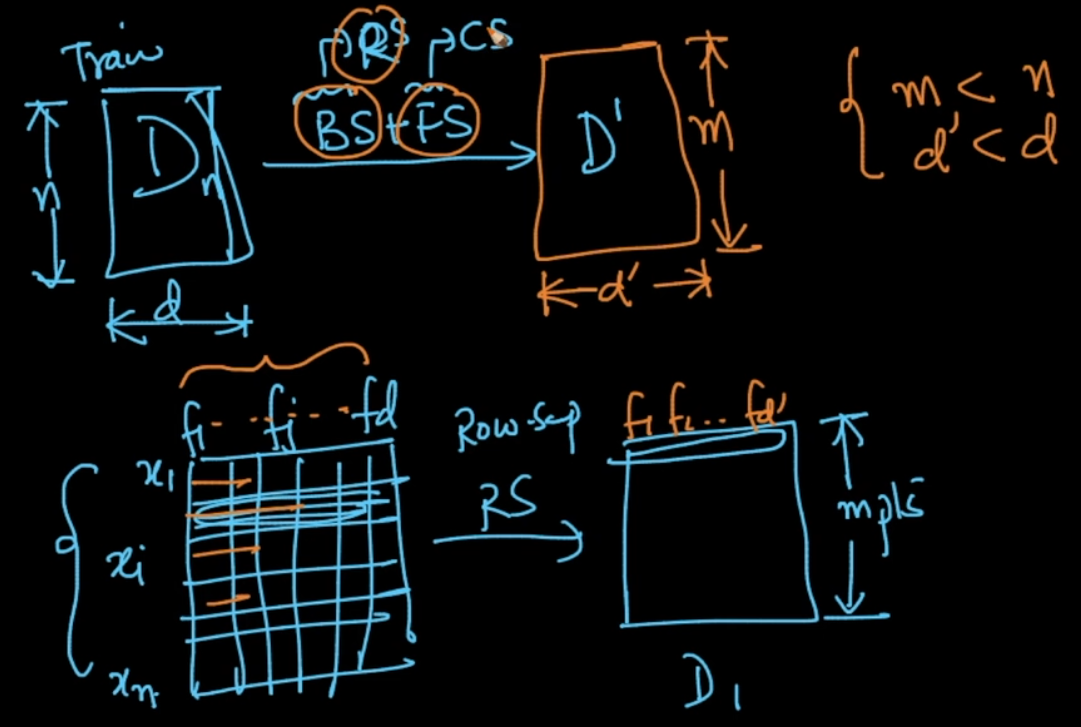 Train
RS CS
BS+FS
D
n
n
d
D'
m
d'
m < n
d' < d
f1 ... fj ... fd
x1
xi
xn
Row-Samp
RS
f1 f2 ... fd'
m pts
D1